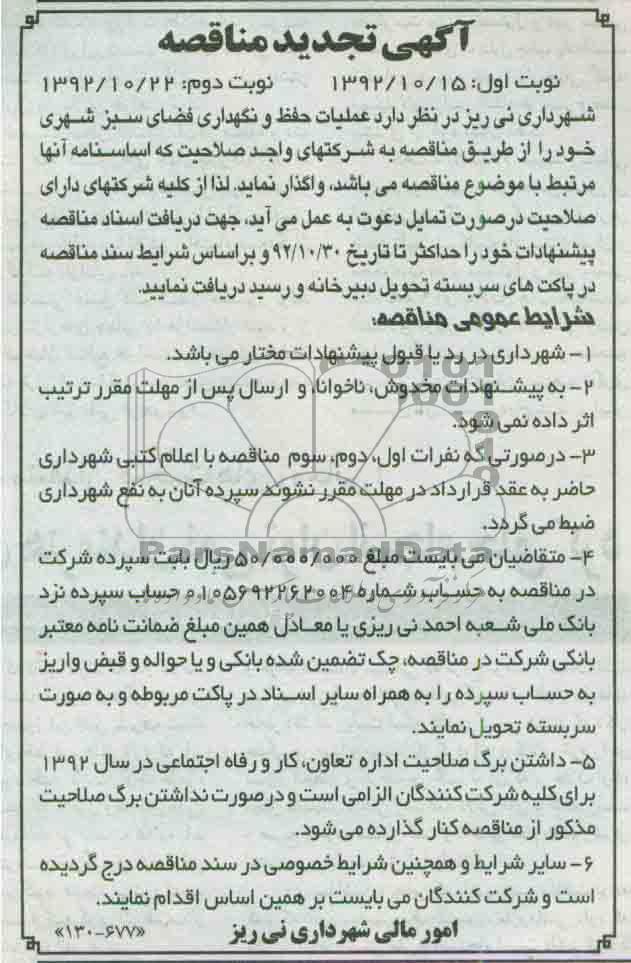 آگهی تجدید مناقصه
نوبت اول: ۱۳۹۲/۱۰/۱۵ نوبت دوم: ۱۳۹۲/۱۰/۲۲
شهرداری نی ریز در نظر دارد عملیات حفظ و نگهداری فضای سبز شهری
خود را از طریق مناقصه به شرکتهای واجد صلاحیت که اساسنامه آنها
مرتبط با موضوع مناقصه می باشد، واگذار نماید. لذا از کلیه شرکتهای دارای
صلاحیت درصورت تمایل دعوت به عمل می آید، جهت دریافت اسناد مناقصه
پیشنهادات خود را حداکثر تا تاریخ ۹۲/۱۰/۳۰ و براساس شرایط سند مناقصه
در پاکت های سربسته تحویل دبیرخانه و رسید دریافت نمایید.
شرایط عمومی مناقصه:
۱- شهرداری در رد یا قبول پیشنهادات مختار می باشد.
۲- به پیشنهادات مخدوش، ناخوانا، و ارسال پس از مهلت مقرر ترتیب
اثر داده نمی شود.
۳- درصورتی که نفرات اول، دوم، سوم مناقصه با اعلام کتبی شهرداری
حاضر به عقد قرارداد در مهلت مقرر نشوند سپرده آنان به نفع شهرداری
ضبط می گردد.
ParsNamadData.com
۴- متقاضیان می بایست مبلغ ۵۰/۰۰۰/۰۰۰ ریال بابت سپرده شرکت
در مناقصه به حساب شماره ۰۱۰۵۶۹۲۲۶۲۰۰۴ حساب سپرده نزد
بانک ملی شعبه احمد نی ریزی یا معادل همین مبلغ ضمانت نامه معتبر
بانکی شرکت در مناقصه، چک تضمین شده بانکی و یا حواله و قبض واریز
به حساب سپرده را به همراه سایر اسناد در پاکت مربوطه و به صورت
سربسته تحویل نمایند.
۵- داشتن برگ صلاحیت اداره تعاون، کار و رفاه اجتماعی در سال ۱۳۹۲
برای کلیه شرکت کنندگان الزامی است و درصورت نداشتن برگ صلاحیت
مذکور از مناقصه کنار گذارده می شود.
۶- سایر شرایط و همچنین شرایط خصوصی در سند مناقصه درج گردیده
است و شرکت کنندگان می بایست بر همین اساس اقدام نمایند.
امور مالی شهرداری نی ریز «۱۳۰-۶۷۷»